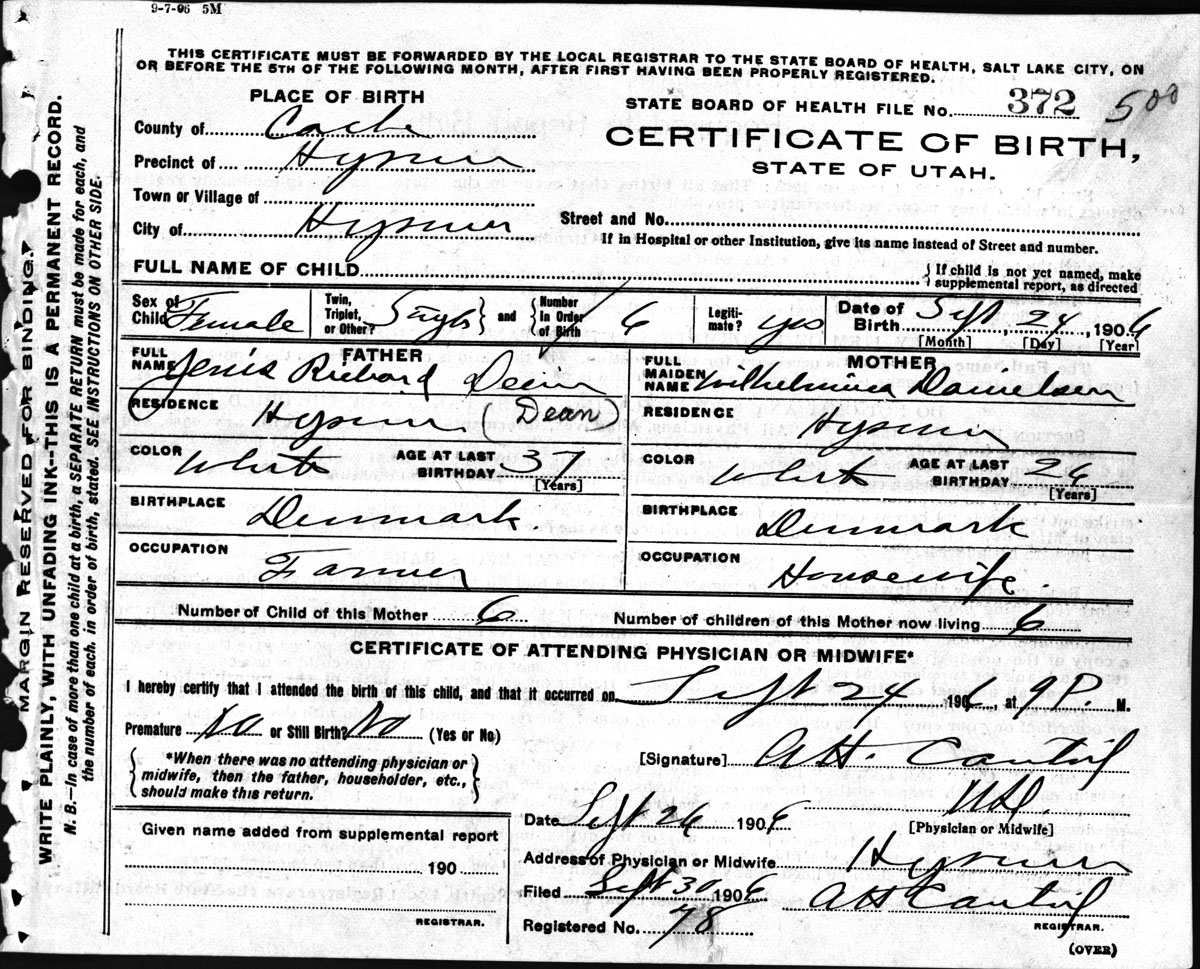 9-7-06 5M
THIS CERTIFICATE MUST BE FORWARDED BY THE LOCAL REGISTRAR TO THE STATE BOARD OF HEALTH, SALT LAKE CITY, ON
OR BEFORE THE 5TH OF THE FOLLOWING MONTH, AFTER FIRST HAVING BEEN PROPERLY REGISTERED.
PLACE OF BIRTH
STATE BOARD OF HEALTH FILE No. 372 500
County of Cache
CERTIFICATE OF BIRTH,
STATE OF UTAH.
Precinct of Hyrum
Town or Village of
City of Hyrum Street and No.
If in Hospital or other Institution, give its name instead of Street and number.
FULL NAME OF CHILD
If child is not yet named, make
supplemental report, as directed
Sex of Child Female Twin, Triplet, or Other? Single and Number in Order of Birth 6 Legiti-mate? yes Date of Birth Sept 24, 1906
[Month] [Day] [Year]
FATHER
FULL NAME Jenis Richard Deein
MOTHER
FULL MAIDEN NAME Wilhelmina Danielsen
RESIDENCE Hyrum (Dean)
RESIDENCE Hyrum
COLOR White AGE AT LAST BIRTHDAY 37
[Years]
COLOR White AGE AT LAST BIRTHDAY 26
[Years]
BIRTHPLACE Denmark
BIRTHPLACE Denmark
OCCUPATION Farmer
OCCUPATION Housewife.
Number of Child of this Mother 6 Number of children of this Mother now living 6
CERTIFICATE OF ATTENDING PHYSICIAN OR MIDWIFE*
I hereby certify that I attended the birth of this child, and that it occurred on Sept 24 1906, at 9 P. M.
Premature No or Still Birth? No (Yes or No)
*When there was no attending physician or
midwife, then the father, householder, etc.,
should make this return.
[Signature] A.H. 
M.D.
[Physician or Midwife]
Date Sept 26 1906
Given name added from supplemental report
190
REGISTRAR.
Address of Physician or Midwife Hyrum
Filed Sept 30 1906 A H
REGISTRAR.
Registered No. 78
(OVER)
MARGIN RESERVED FOR BINDING.
WRITE PLAINLY, WITH UNFADING INK--THIS IS A PERMANENT RECORD.
N. B.—In case of more than one child at a birth, a SEPARATE RETURN must be made for each, and
the number of each, in order of birth, stated. SEE INSTRUCTIONS ON OTHER SIDE.